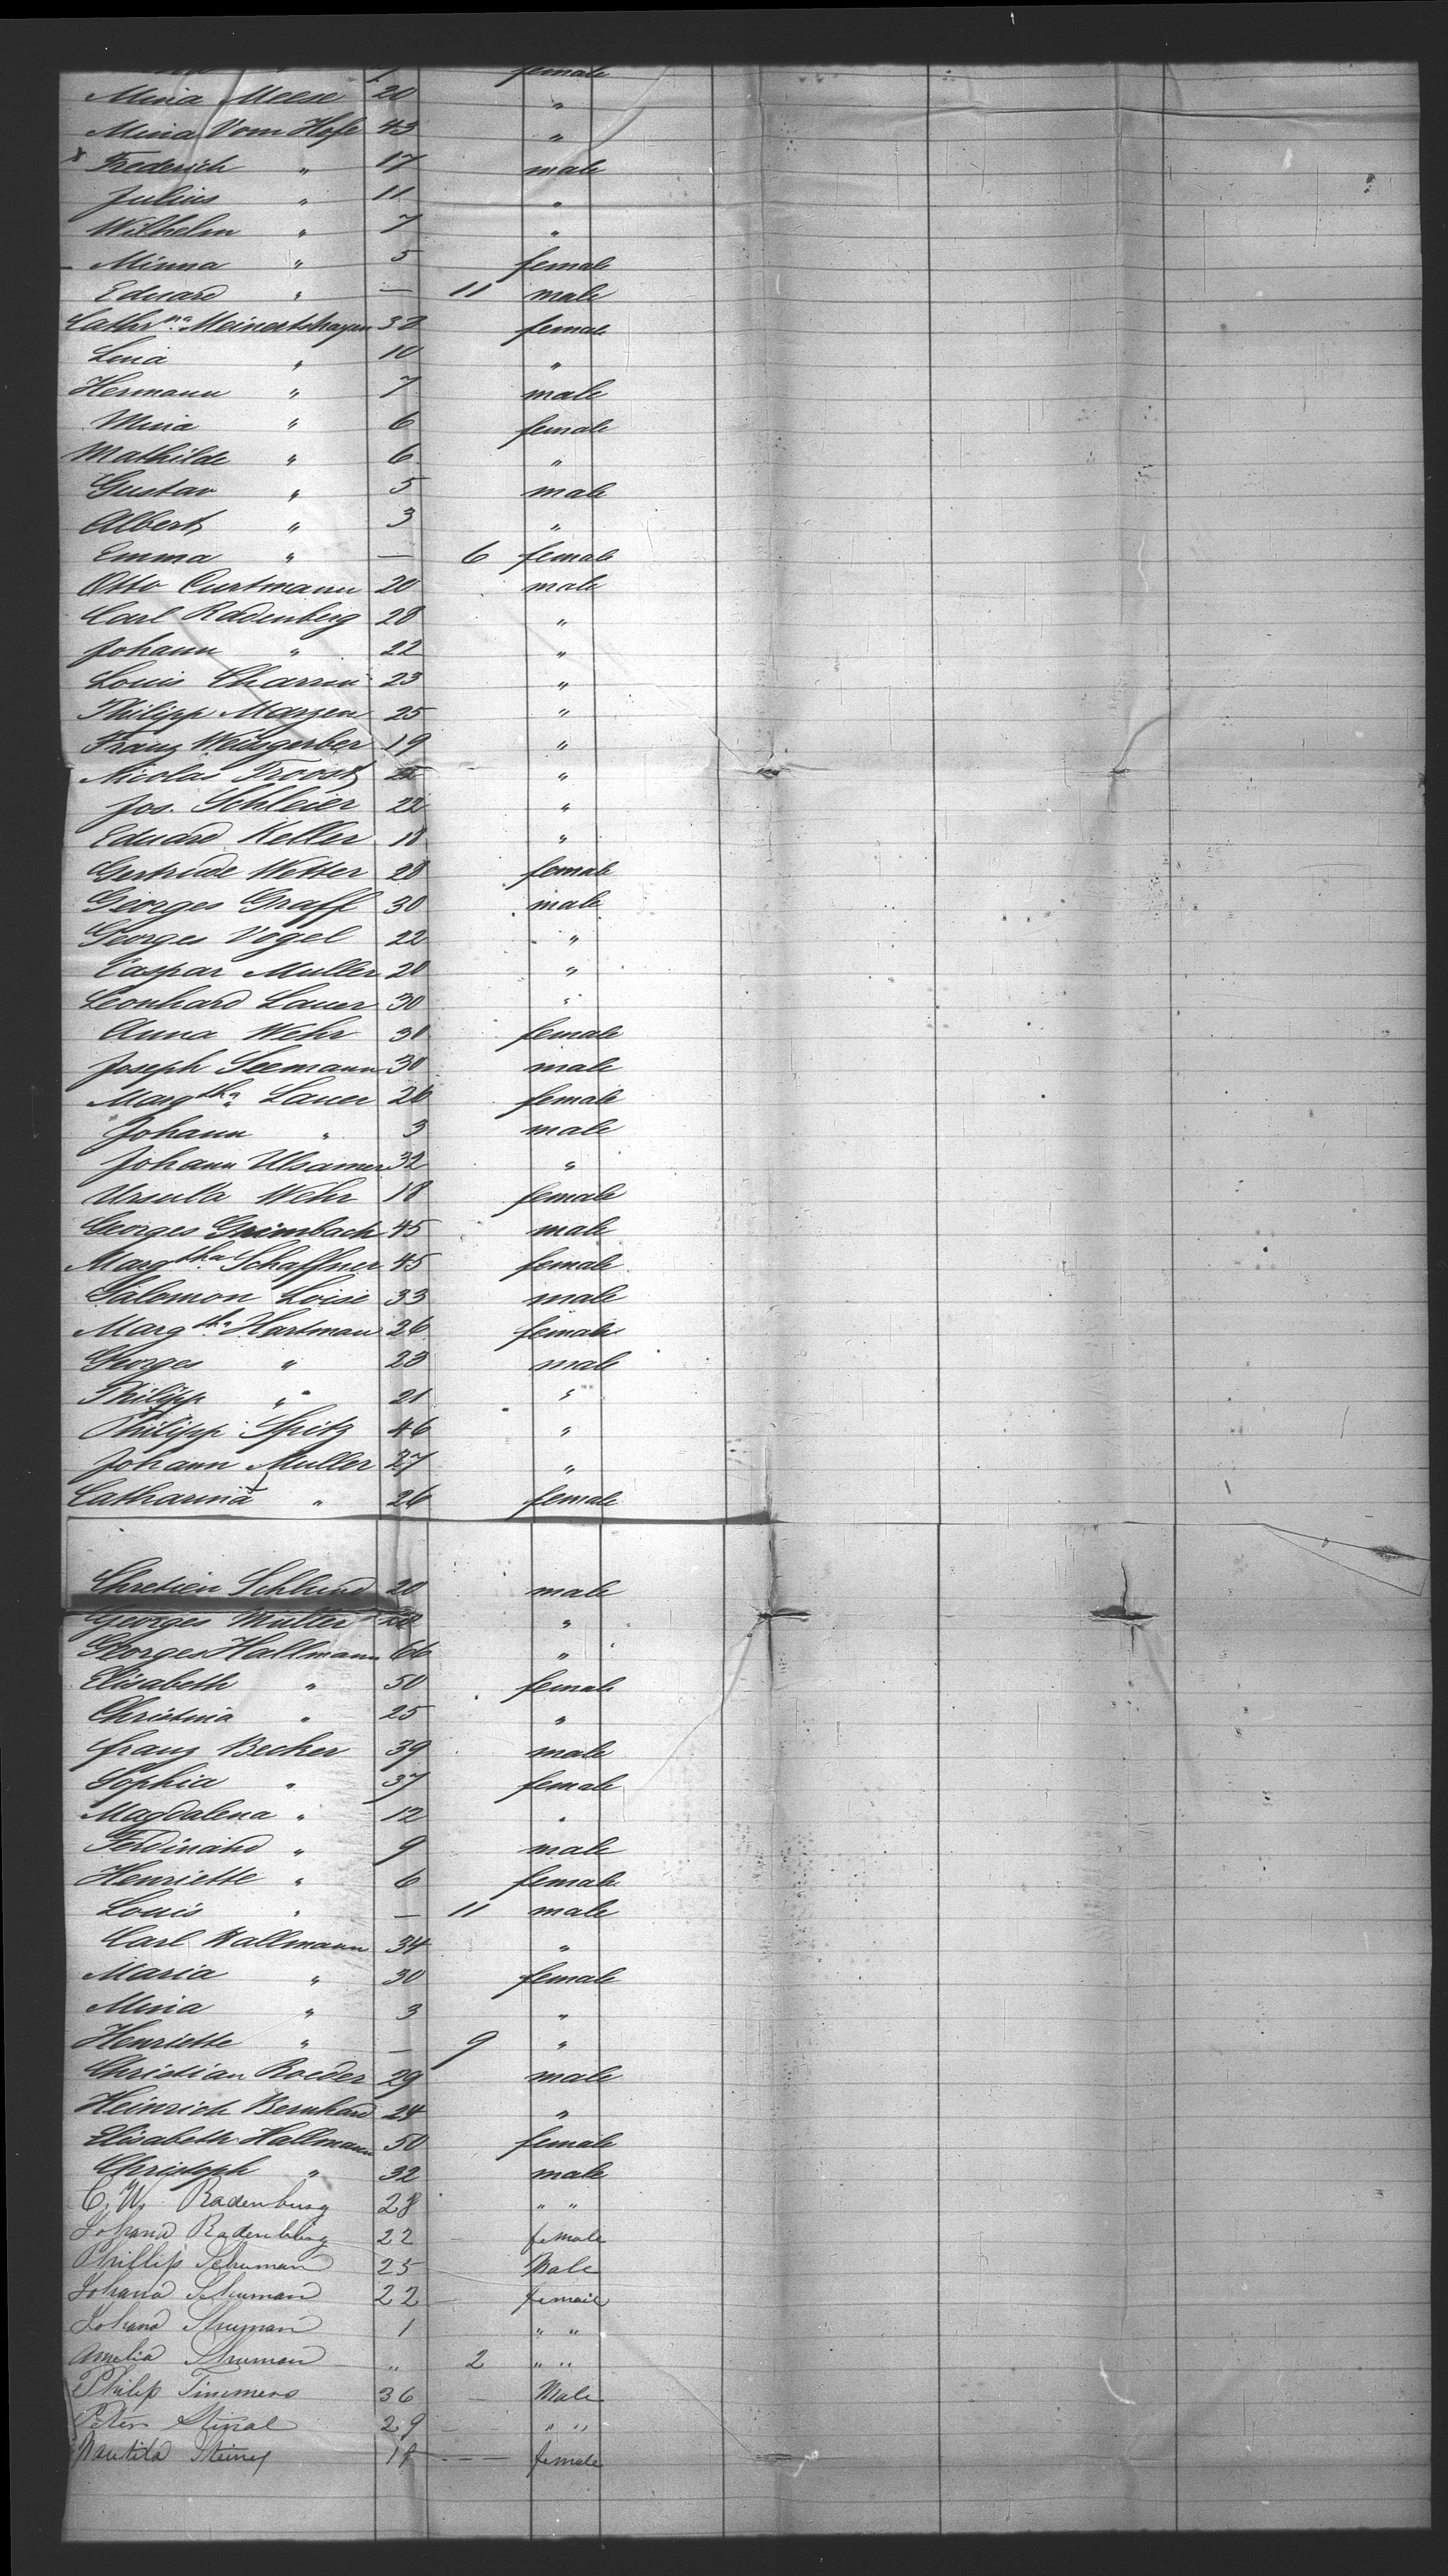 female
Mina Meese 20 "
Mina Vom Hofe 43 "
x Frederich " 17 male
Julius " 11 "
Wilhelm " 7 "
Minna " 5 female
Eduard " — 11 male
Cathr na Meinertshagen 38 female
Lina " 10 "
Hermann " 7 male
Mina " 6 female
Mathilde " 6 "
Gustav " 5 male
Albert " 3 "
Emma " — 6 female
Otto Curtmann 20 male
Carl Radenberg 28 "
Johann " 22 "
Louis 23 "
Philipp Marzen 25 "
Franz Weisgerber 19 "
Nicolas Troost "
Jos. Schleier 22 "
Eduard Keller 18 "
Gertrude Wetter 28 female
Georges Graff 30 male
Georges Vogel 22 "
Caspar Muller 20 "
Leonhard Lauer 30 "
Anna Wehr 30 female
Joseph Seemann 30 male
Marg tha Lauer 26 female
Johann " 3 male
Johann Ulsamer 32 "
Ursula Wehr 18 female
Georges Grimbach 45 male
Marg tha Schaffner 45 female
Salomon Loise 33 male
Marg tha Hartman 26 female
Georges " 23 male
Philipp " 21 "
Philipp Spitz 46 "
Johann Muller 27 "
Catharina " 26 female
Chretien Schlund 20 male
Georges Muller "
Georges Hallmann 66 "
Elisabeth " 50 female
Christina " 25 "
Franz Becker 39 male
Sophia " 37 female
Magdalena " 12 "
Ferdinand " 9 male
Henriette " 6 female
Louis " — 11 male
Carl Wallmann 34 "
Maria " 30 female
Mina " 3 "
Henriette " — 9 "
Christian Roeder 29 male
Heinrich Bernhard 24 "
Elisabeth Hallmann 50 female
Christoph " 32 male
C. W. Radenburg 28 " "
Johana Radenburg 22 female
Phillip Schuman 25 Male
Johana Schuman 22 femail
Johana Shuman 1 " "
Amelia Shuman " 2 " "
Philip Timmers 36 Male
Peter 29 " "
female